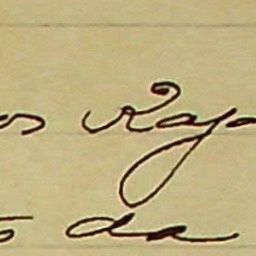 os Raya
o da